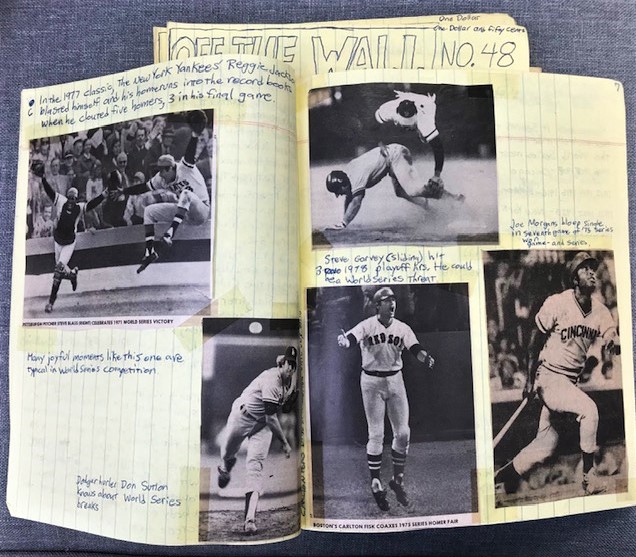 One Dollar
One Dollar and fifty cents
OFF THE WALL NO. 48
In the 1977 classic, The New York Yankees' Reggie Jackson
blasted himself and his homeruns into the record books
When he clouted five homers, 3 in his final game.
6
PITTSBURGH PITCHER STEVE BLASS (RIGHT) CELEBRATES 1971 WORLD SERIES VICTORY
Many joyful moments like this one are
typical in World Series competition
Dodger hurler Don Sutton
knows about World Series
breaks
7
Steve Garvey (sliding) hit
3 1978 playoff hrs. He could
be a World Series threat.
Joe Morgan's bloop single
in seventh game of '75 Series
won
game-and series.
RED SO
CINCINN
BOSTON'S CARLTON FISK COAXES 1975 SERIES HOMER FAIR